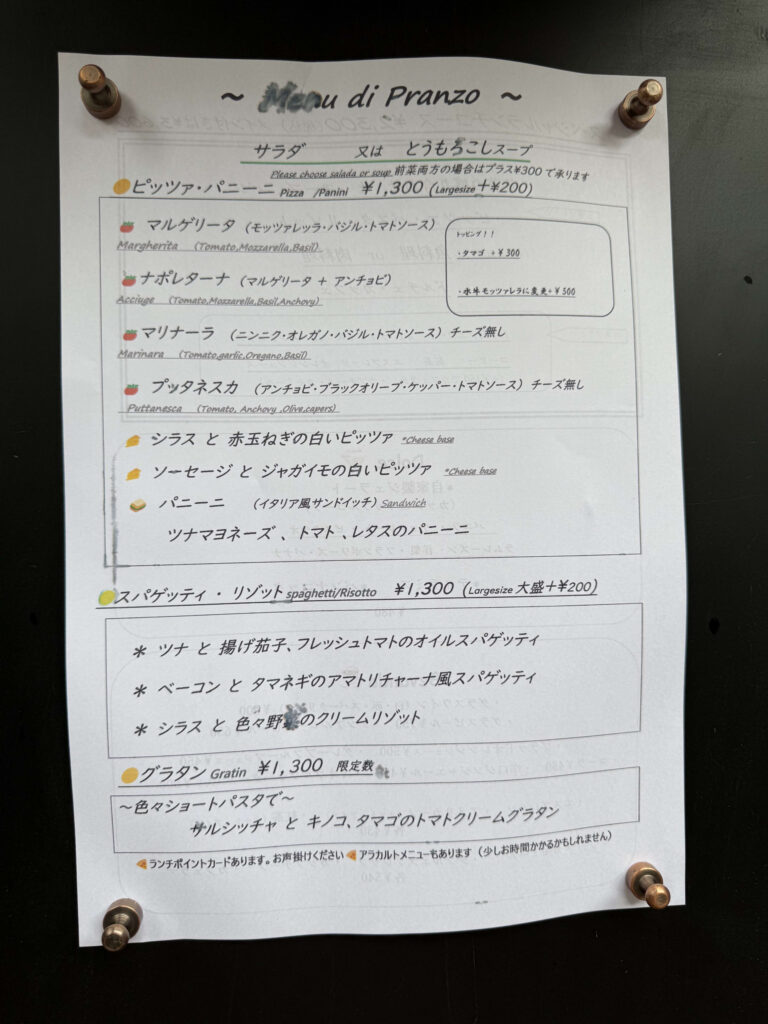 ~ Menu di Pranzo ~
サラダ 又は とうもろこしスープ
Please choose salada or soup 前菜両方の場合はプラス¥300で承ります
ピッツァ・パニーニ Pizza /Panini ¥1,300 (Largesize+¥200)
マルゲリータ (モッツァレッラ・バジル・トマトソース)
Margherita (Tomato,Mozzarella,Basil)
トッピング！！
・タマゴ +¥300
・水牛モッツァレラに変更+¥300
ナポレターナ (マルゲリータ + アンチョビ)
Acciuge (Tomato,Mozzarella,Basil,Anchovy)
マリナーラ (ニンニク・オレガノ・バジル・トマトソース) チーズ無し
Marinara (Tomato,garlic,Oregano,Basil)
プッタネスカ (アンチョビ・ブラックオリーブ・ケッパー・トマトソース) チーズ無し
Puttanesca (Tomato, Anchovy ,Olive,capers)
シラス と 赤玉ねぎの白いピッツァ *Cheese base
ソーセージ と ジャガイモの白いピッツァ *Cheese base
パニーニ (イタリア風サンドイッチ) Sandwich
ツナマヨネーズ 、トマト 、レタスのパニーニ
スパゲッティ ・ リゾット spaghetti/Risotto ¥1,300 (Largesize 大盛+¥200)
* ツナ と 揚げ茄子、フレッシュトマトのオイルスパゲッティ
* ベーコン と タマネギのアマトリチャーナ風スパゲッティ
* シラス と 色々野菜のクリームリゾット
グラタン Gratin ¥1,300 限定数
～色々ショートパスタで～
サルシッチャ と キノコ、タマゴのトマトクリームグラタン
ランチポイントカードあります。お声掛けください アラカルトメニューもあります (少しお時間かかるかもしれません)